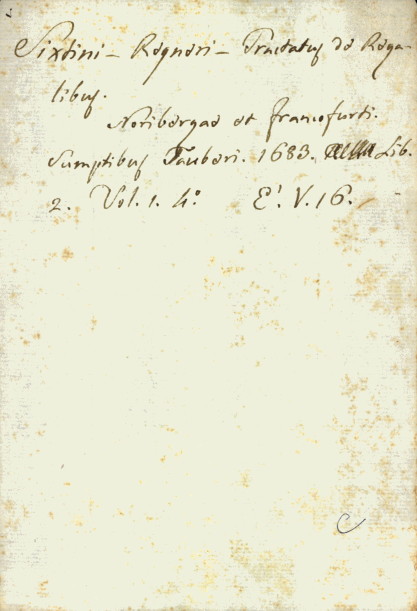 Sixtini – Regneri – Tractatus de Rega-
libus.
Noribergae et francofurti.
Sumptibus Tauberi. 1683. Lib.
2. Vol. 1. 4º E! V. 16.
C